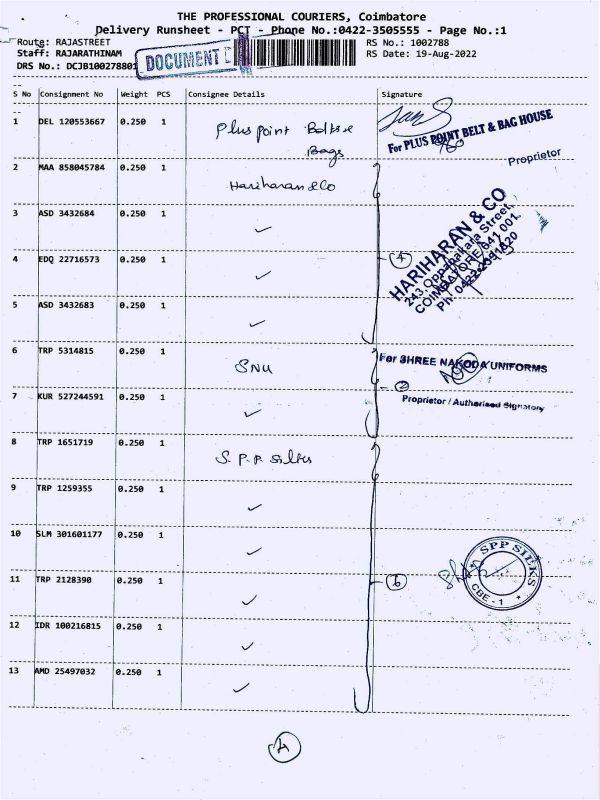 THE PROFESSIONAL COURIERS, Coimbatore
Delivery Runsheet - PCT - Phone No.:0422-3505555 - Page No.:1
Route: RAJASTREET RS No.: 1002788
Staff: RAJARATHINAM RS Date: 19-Aug-2022
DRS No.: DCJB100278801
DOCUMENT
S No Consignment No Weight PCS Consignee Details Signature
1 DEL 120553667 0.250 1 Plus point Belts & Bags
For PLUS POINT BELT & BAG HOUSE
Proprietor
2 MAA 858045784 0.250 1 Hariharan & Co
3 ASD 3432684 0.250 1 ✓
HARIHARAN & CO
243, Oppanakara Street,
COIMBATORE-641 001.
4 EDQ 22716573 0.250 1 ✓ 4
5 ASD 3432683 0.250 1 ✓
6 TRP 5314815 0.250 1 SNU
For SHREE NAKODA UNIFORMS
2
Proprietor / Authorised Signatory
7 KUR 527244591 0.250 1 ✓
8 TRP 1651719 0.250 1 S.P.P. Silks
9 TRP 1259355 0.250 1 ✓
10 SLM 301601177 0.250 1 ✓
SPP SILKS
CBE - 1
11 TRP 2128390 0.250 1 ✓ 6
12 IDR 100216815 0.250 1 ✓
13 AMD 25497032 0.250 1 ✓
4